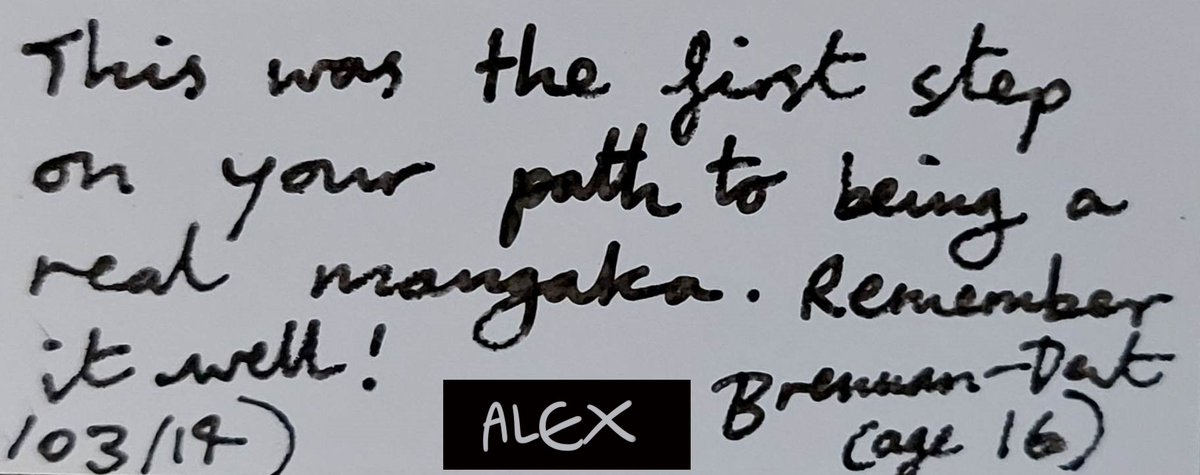 This was the first step
on your path to being a
real mangaka. Remember
it well!
ALEX Brennan-Dent
/03/14) (age 16)